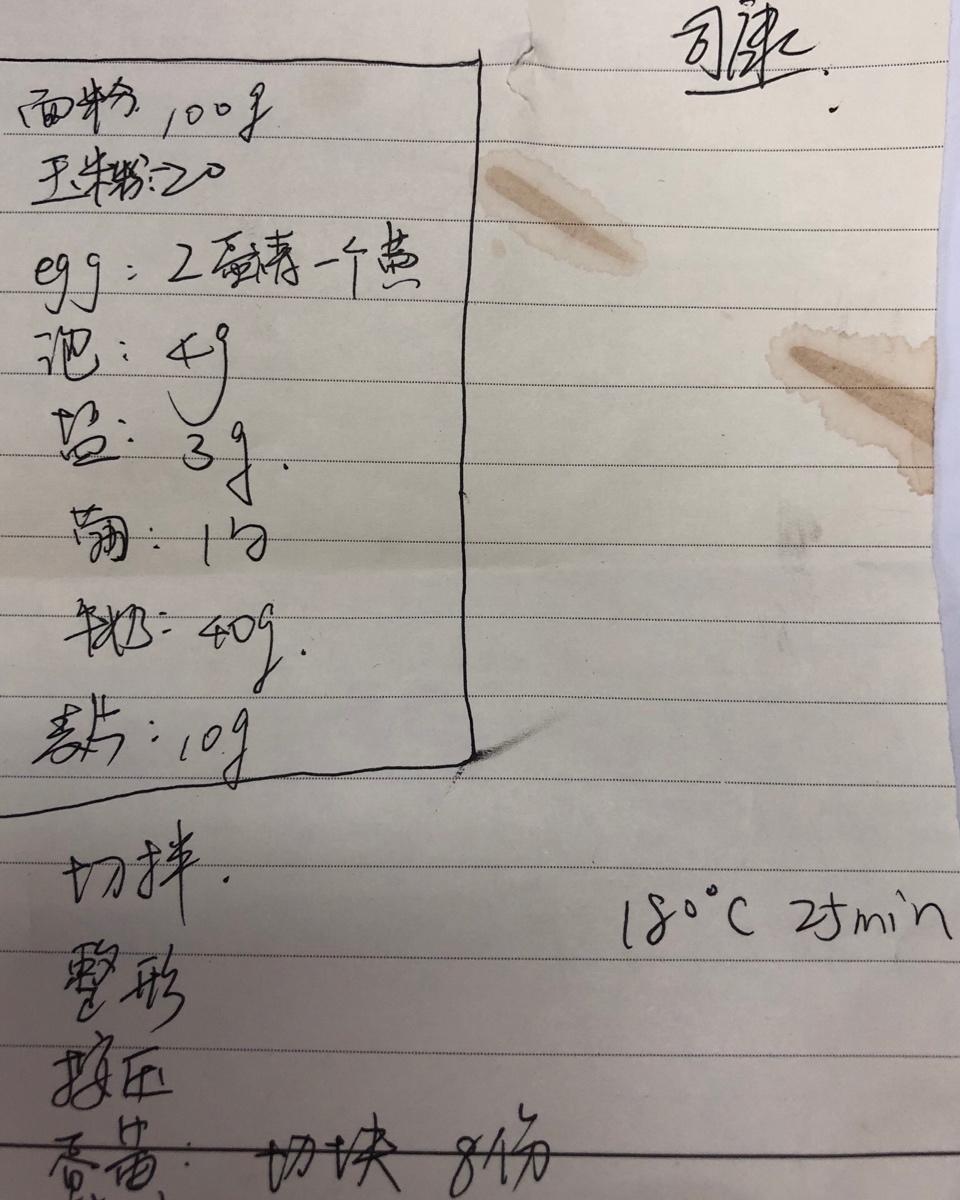 司康.
面粉 100g
玉米粉:20
egg: 2蛋清一个黄
泡: 4g
盐: 3g.
: 1勺
牛奶: 40g.
麦片: 10g
切拌.
180°C 25min
整形
按压
蛋黄: 切块 8份